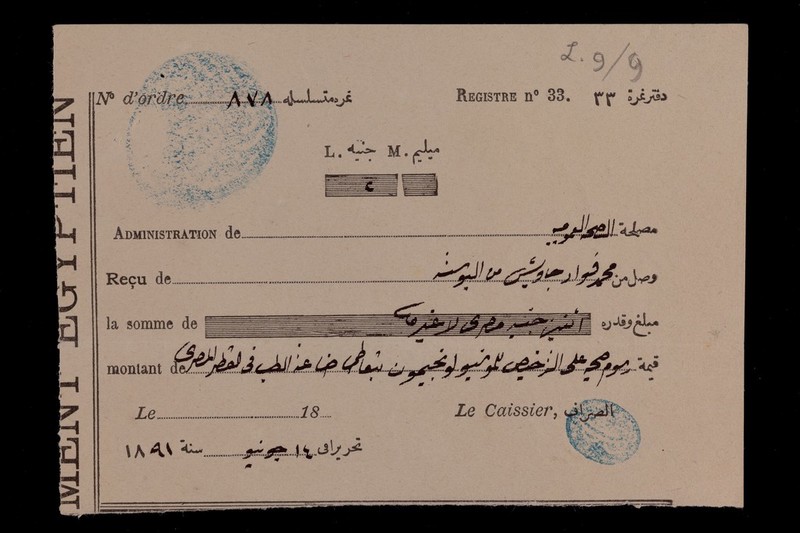 L. 9/9
N° d'ordre ٨٧٨ نمره متسلسله
REGISTRE n° 33. دفتر نمرة ٣٣
L. جنيه M. مليم
٢
ADMINISTRATION de الصحه العموميه مصلحة
Reçu de محمد فؤاد جاويش من وصل من
la somme de اثنين جنيه مصرى لا غير مبلغ وقدره
montant de رسوم على الترخيص بتعاطى صناعة الطب فى القطر المصرى قيمة
Le 18 Le Caissier, الصراف
تحريرا فى ١٤ جونيو سنة ١٨٩١
MENT EGYPTIEN